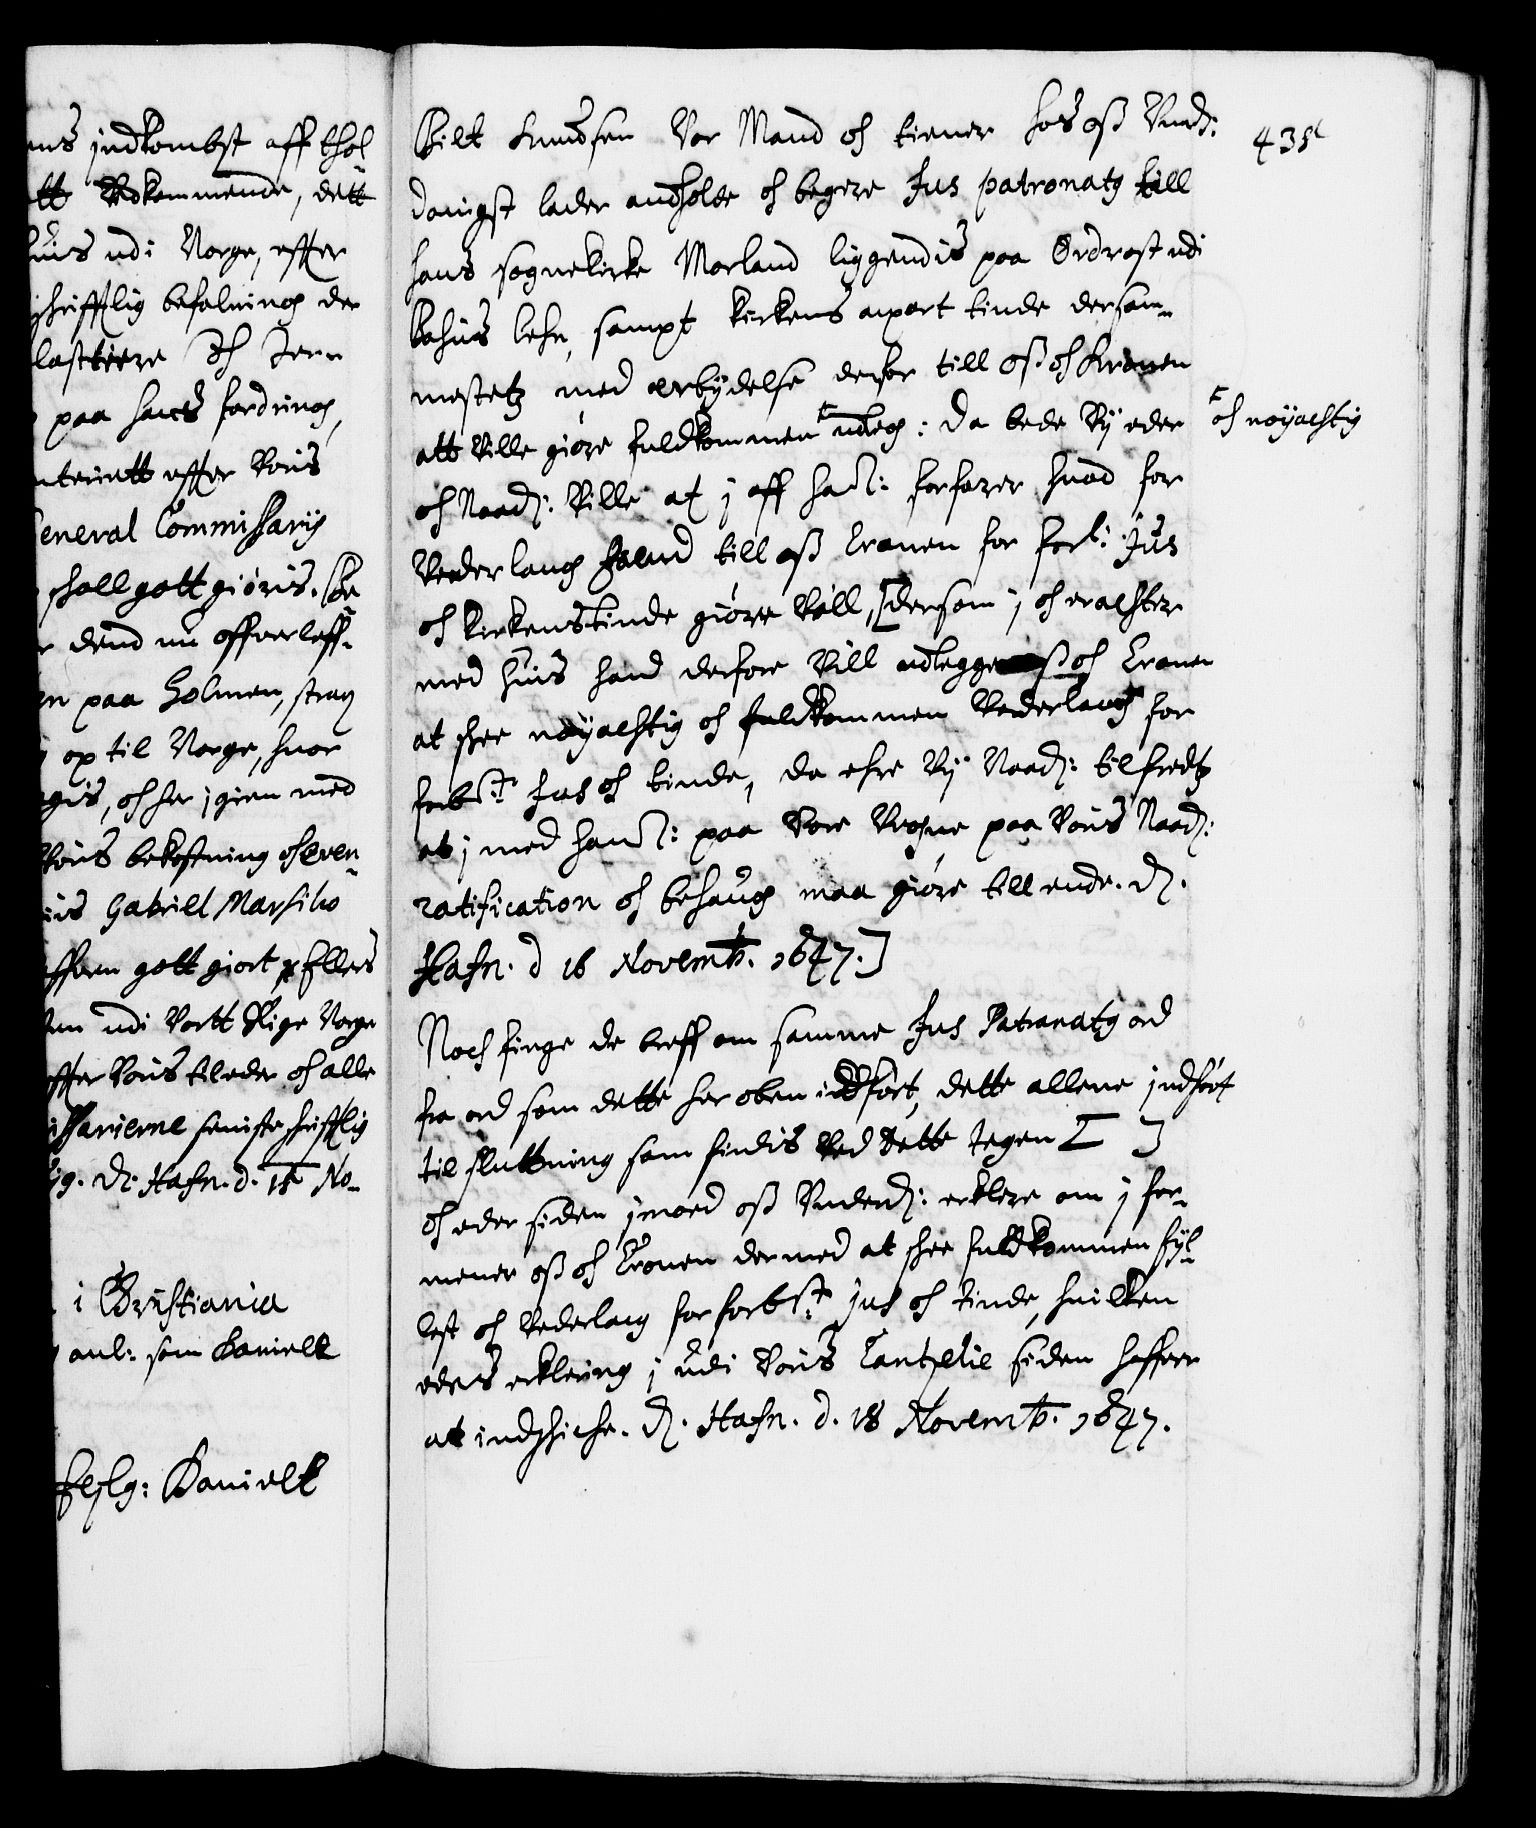 ens jndkombst aff thol
tt Vedkommende, dett
huis udi Norge, effter
schrifftlig befalning der
lasteere Och Jern
paa hans fordring,
nterett effter Voris
General Commissarij
schall gott giøris. Be
dend nu offverleff-
en paa Holmen, strax
op til Norge, huor
gis, och her igien med
Voris bekostning och even
Gabriell Marsilio
offven gott giort Ellers
udi Vortt Rige Norge
effter Voris til eder och alle
issarierne seniste schrifftlig
D: Hafn. d. 18 No-
i Christiania
anl: som Daniell
Daniell
435
Bilt Knudsen Vor Mand och tiener hos oß Vnd:
danigst lader andholde och begere Jus patronatg till
hans sognekirke Morland liggendis paa Ordrost udi
Bahus lehn, sampt kirkens anpart tinde dersam-
mestetz med erbydelse derfor till oß och Kronen
att Ville giøre fuldkommen udleg: Da bede Vy eder
och nøyachtig
och Naad: Ville at j aff ham: forfarer huad for
Vederlaug hand till oß Cronen for forb: Jus
och kirkens tinde giøre Vill, [dersom j och erachter
med huis hand derfore Vill udlegge oß och Cronen
at schee nøyachtig och fuldkommen Vederlaug for
forbte Jus och tinde, da ehre Vy Naad: tilfredtz
at j med ham: paa Vore Vegne paa Voris Naad:
ratification och behaug maa giøre till ende. D.
Hafn. d 16 Novemb. 1647.]
Noch finge de breff om samme Jus Patronatg ord
fra ord som dette her oben indført, dette allene jndført
til sluttning som findis Ved dette tegen [ ]
och eder siden jmoed oß Vnderd: erklere om j for-
mener oß och Cronen dermed at schee fuldkommen fyl-
lest och Vederlaug for forbte jus och tinde, huilken
eders erklering j udi Voris Cantzelie siden haffver
at indschiche. D. Hafn. d. 18 Novemb. 1647.